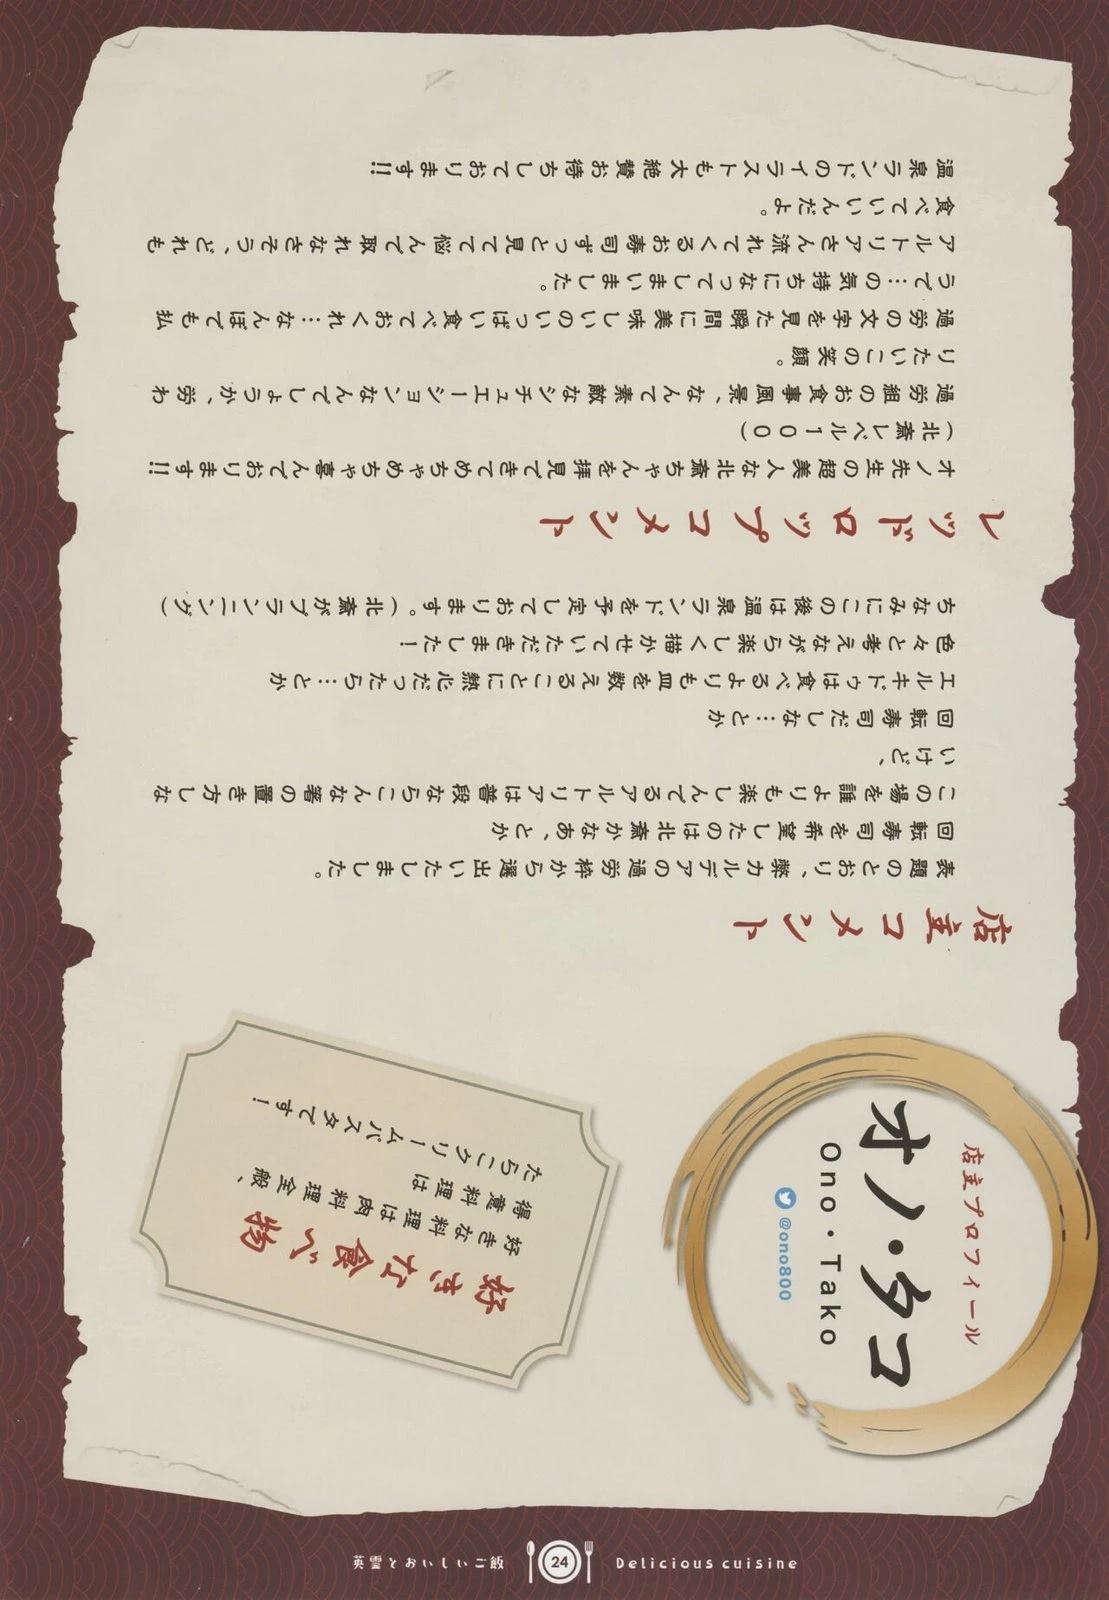 店主プロフィール
オノ・タコ
Ono・Tako
@ono800
好きな食べ物
好きな料理は肉料理全般、
得意料理は
たらこクリームパスタです!
店主コメント
表題のとおり、弊カルデアの過労枠から選出いたしました。
回転寿司を希望したのは北斎かなあ、とか
この場を誰よりも楽しんでるアルトリアは普段ならこんな箸の置き方しな
いけど、
回転寿司だしな…とか
エルキドゥは食べるよりも皿を数えることに熱心だったら…とか
色々と考えながら楽しく描かせていただきました!
ちなみにこの後は温泉ランドを予定しております。(北斎がプランニング)
レッドロップコメント
オノ先生の超美人な北斎ちゃんを拝見できてめちゃめちゃ喜んでおります!!
(北斎レベル100)
過労組のお食事風景、なんて素敵なシチュエーションなんでしょうか、労わ
りたいこの笑顔。
過労の文字を見た瞬間に美味しいのいっぱい食べておくれ…なんぼでも払
うで…の気持ちになってしまいました。
アルトリアさん流れてくるお寿司ずっと見てて悩んで取れなさそう、どれも
食べていいんだよ。
温泉ランドのイラストも大絶賛お待ちしております!!
英霊とおいしいご飯 24 Delicious cuisine